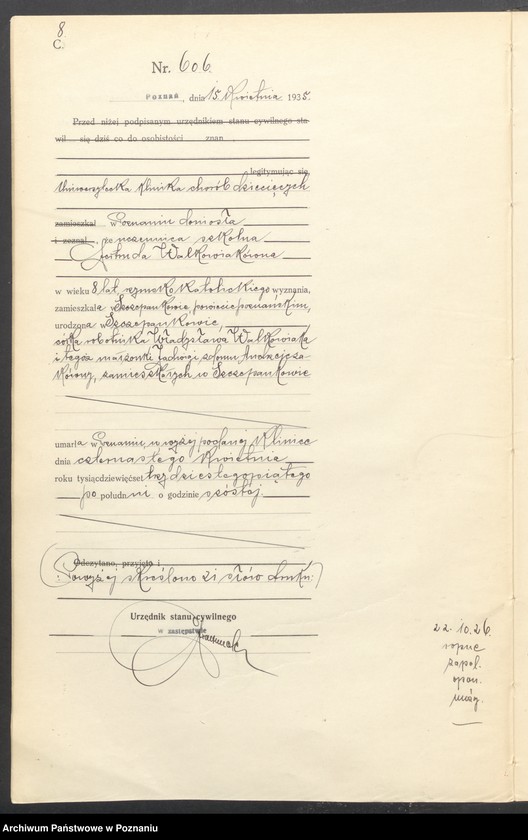 8
C.
Nr. 606.
Poznań, dnia 15 Kwietnia 1935.
Przed niżej podpisanym urzędnikiem stanu cywilnego sta-
wił się dziś co do osobistości znan
legitymując się
Uniwersytecka Klinika chorób dziecięcych
zamieszkał w Poznaniu doniosła
i zeznał, że uczennica szkolna
Walkowiakówna
w wieku 8 lat, rzymsko katolickiego wyznania,
zamieszkała w Szczepankowie, powiecie poznańskim,
urodzona w Szczepankowie,
córka robotnika Władysława Walkowiaka
i tegoż małżonki Jadwigi z domu
zamieszkałych w Szczepankowie
umarła w Poznaniu, w wyżej podanej Klinice
dnia czternastego Kwietnia
roku tysiącdziewięćset trzydziestegopiątego
po południu o godzinie szóstej.
Odczytano, przyjęto i
(: Powyżej skreślono 21 słów druku :)
Urzędnik stanu cywilnego
w zastępstwie
22.10.26.
ropne
zapal.
opon.
mózg.
Archiwum Państwowe w Poznaniu